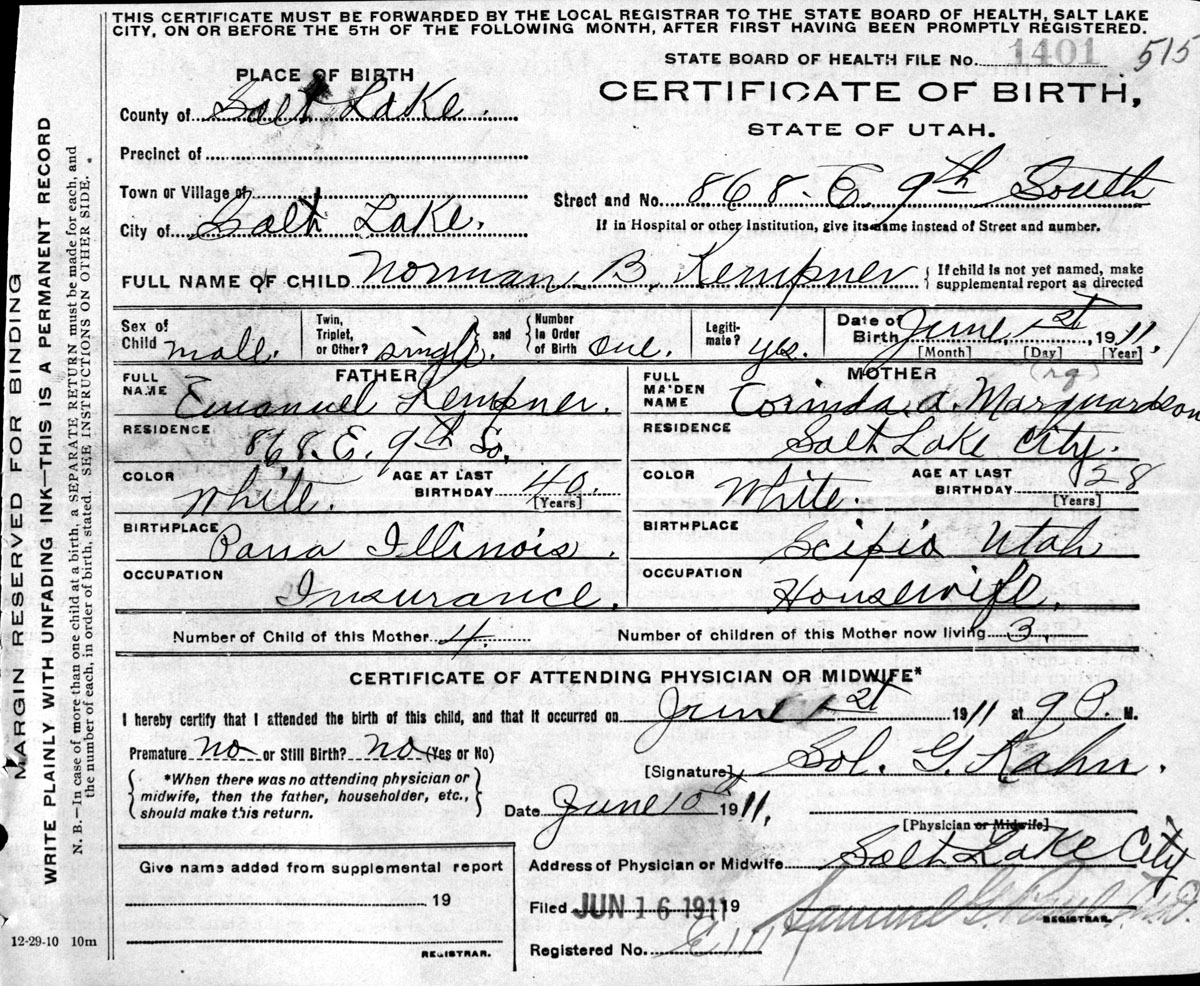 THIS CERTIFICATE MUST BE FORWARDED BY THE LOCAL REGISTRAR TO THE STATE BOARD OF HEALTH, SALT LAKE
CITY, ON OR BEFORE THE 5TH OF THE FOLLOWING MONTH, AFTER FIRST HAVING BEEN PROMPTLY REGISTERED.
STATE BOARD OF HEALTH FILE No. 1401 515
PLACE OF BIRTH
CERTIFICATE OF BIRTH,
STATE OF UTAH.
County of Salt Lake.
Precinct of
Town or Village of
Street and No. 868. E. 9th South
City of Salt Lake.
If in Hospital or other Institution, give its name instead of Street and number.
FULL NAME OF CHILD Norman B. Kempner
If child is not yet named, make
supplemental report as directed
Sex of Child male.
Twin, Triplet, or Other? single.
and Number in Order of Birth one.
Legiti-mate? yes.
Date of Birth June 1st, 1911,
[Month] [Day] [Year]
FATHER
FULL NAME Emanuel Kempner.
RESIDENCE 868. E. 9th So.
COLOR White. AGE AT LAST BIRTHDAY 40. [Years]
BIRTHPLACE Pana Illinois.
OCCUPATION Insurance.
MOTHER (rg)
FULL MAIDEN NAME Corinda. A. Marquardson
RESIDENCE Salt Lake City.
COLOR White. AGE AT LAST BIRTHDAY 28 [Years]
BIRTHPLACE Scipio Utah
OCCUPATION Housewife.
Number of Child of this Mother 4. Number of children of this Mother now living 3.
CERTIFICATE OF ATTENDING PHYSICIAN OR MIDWIFE*
I hereby certify that I attended the birth of this child, and that it occurred on June 1st 1911 at 9 P. M.
Premature no or Still Birth? no (Yes or No)
*When there was no attending physician or
midwife, then the father, householder, etc.,
should make this return.
[Signature] Sol. G. Kahn.
Date June 10th 1911,
[Physician or Midwife]
Give name added from supplemental report
19
REGISTRAR.
Address of Physician or Midwife Salt Lake City
Filed JUN 16 1911 19
Samuel G. M.D.
REGISTRAR.
Registered No.
12-29-10 10m
MARGIN RESERVED FOR BINDING
WRITE PLAINLY WITH UNFADING INK—THIS IS A PERMANENT RECORD
N. B.—In case of more than one child at a birth, a SEPARATE RETURN must be made for each, and
the number of each, in order of birth, stated. SEE INSTRUCTIONS ON OTHER SIDE.